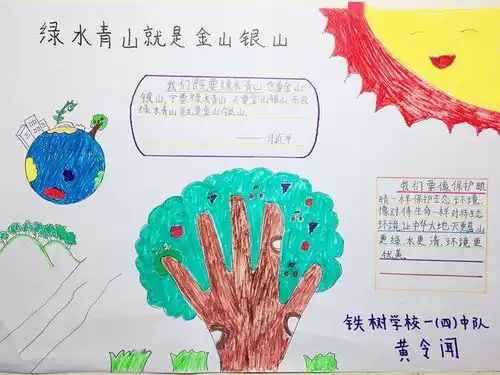 绿水青山就是金山银山
我们既要绿水青山,也要金山
银山,宁要绿水青山,不要金山银山,而且
绿水青山就是金山银山。
——习近平
我们要像保护眼
睛一样保护生态环境,
像对待生命一样对待生态
环境,让中华大地天更蓝,山
更绿,水更清,环境更
优美。
铁树学校一(四)中队
黄令闻